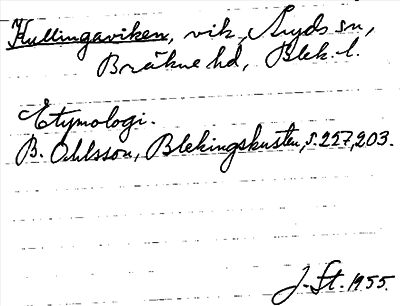 Kullingaviken, vik, Åryds sn,
Bräkne hd, Blek. l.
Etymologi.
B. Ohlsson, Blekingskusten, s. 257, 203.
J. St. 1955.